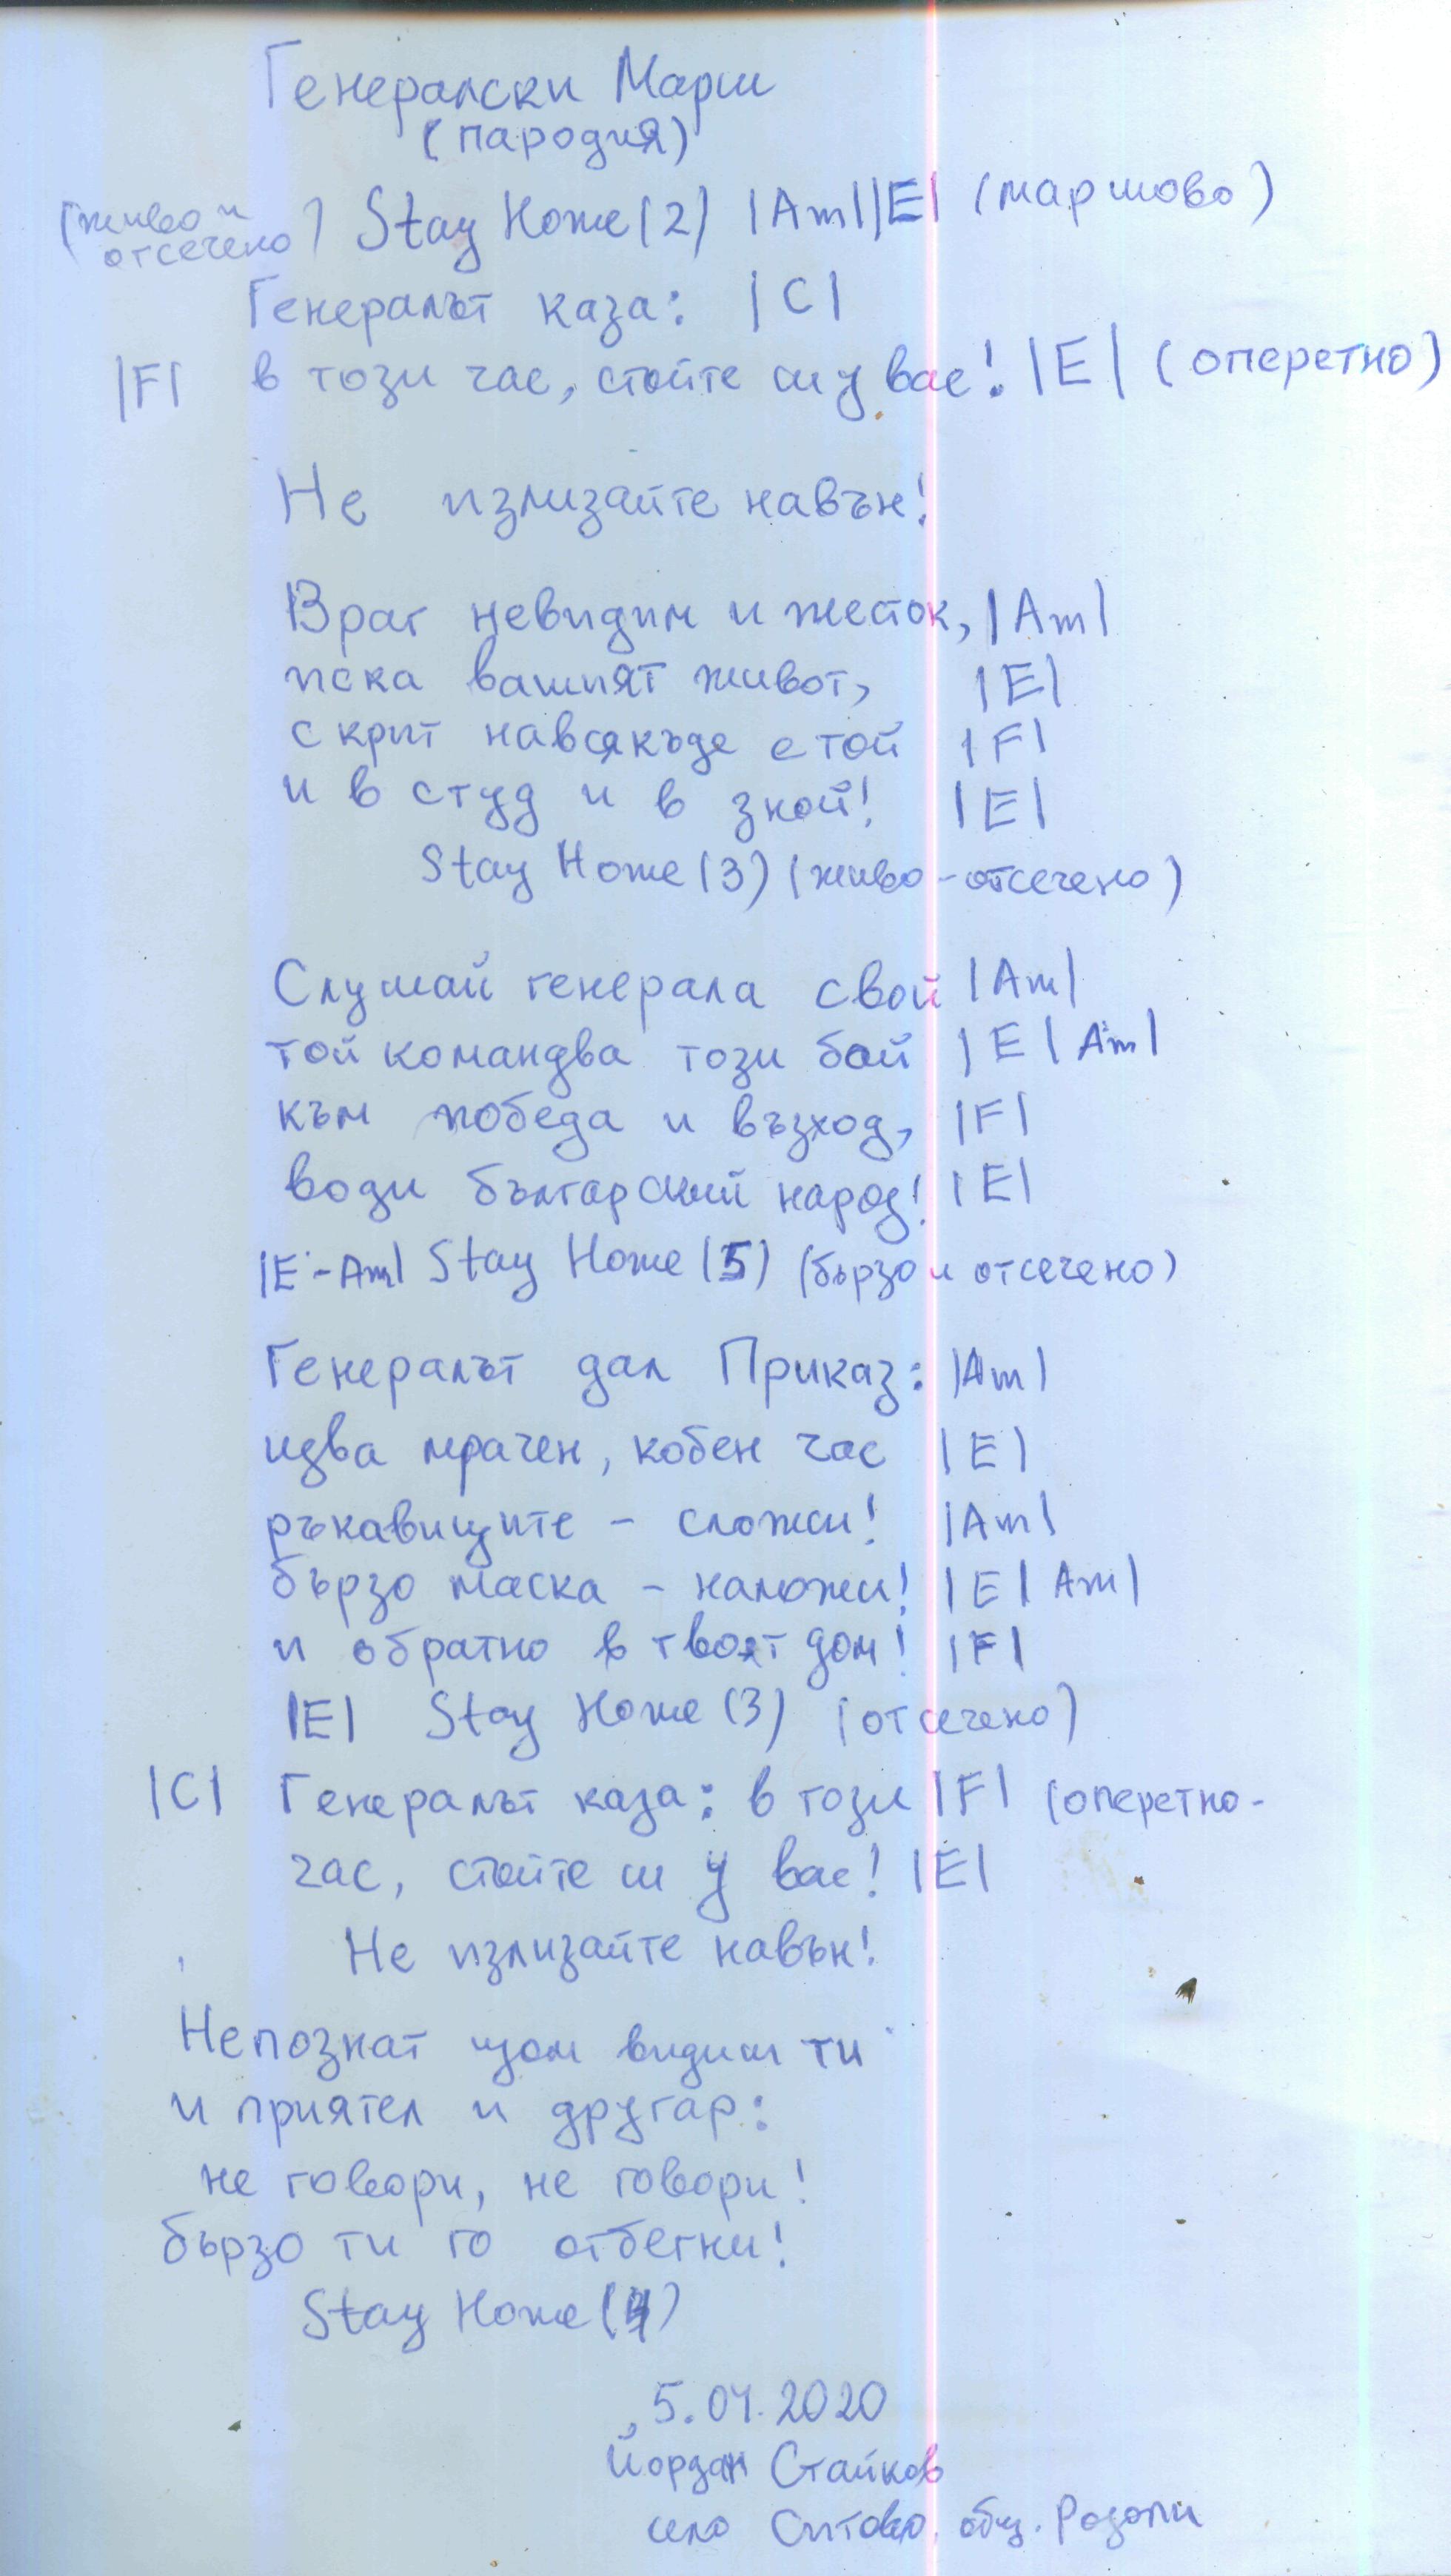 Генералски Марш
(пародия)
(живо и отсечено) Stay Home (2) |Am||E| (маршово)
Генералът каза: |C|
|F| в този час, стойте си у вас! |E| (оперетно)
Не излизайте навън!
Враг невидим и жесток, |Am|
иска вашият живот, |E|
скрит навсякъде е той |F|
и в студ и в зной! |E|
Stay Home (3) (живо-отсечено)
Слушай генерала свой |Am|
той командва този бой |E| Am|
към победа и възход, |F|
води българский народ! |E|
|E-Am| Stay Home (5) (бързо и отсечено)
Генералът дал Приказ: |Am|
идва мрачен, кобен час |E|
ръкавиците - сложи! |Am|
бързо маска - наложи! |E| Am|
и обратно в твоят дом! |F|
|E| Stay Home (3) (отсечено)
|C| Генералът каза: в този |F| (оперетно-
час, стойте си у вас! |E|
Не излизайте навън!
Непознат щом видиш ти
и приятел и другар:
не говори, не говори!
бързо ти го отбегни!
Stay Home (4)
5.04.2020
Йордан Стайков
село Ситово, общ. Родопи